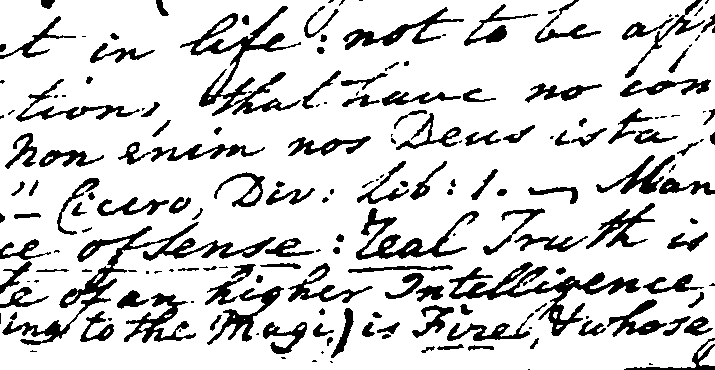 in life: not to be app
tions, that have no con
Non enim nos Deus ista
" — Cicero, Div: Lib: 1. — Man
ce of Sense: Real Truth is
te of an higher Intelligence,
ding to the Magi,) is Fire, & whose